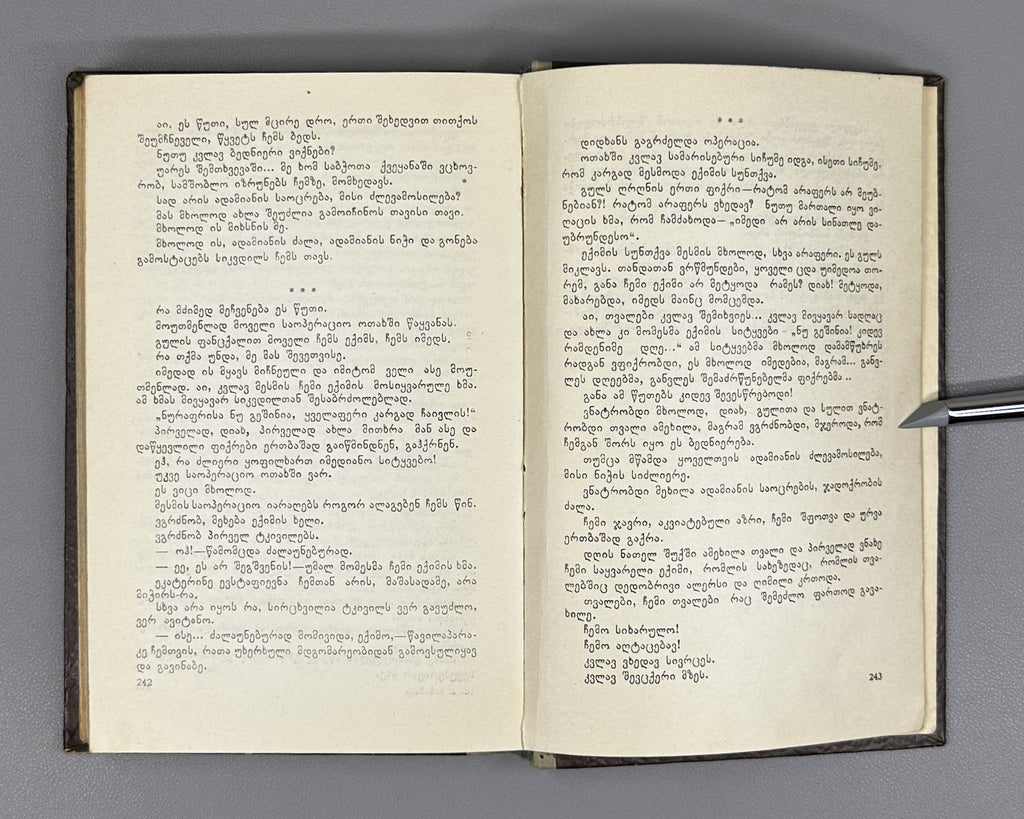 აი, ეს წუთი, სულ მცირე დრო, ერთი შეხედვით თითქოს
შეუმჩნეველი, წყვეტს ჩემს ბედს.
ნუთუ კვლავ ბედნიერი ვიქნები?
უარეს შემთხვევაში... მე ხომ საბჭოთა ქვეყანაში ვცხოვ-
რობ, სამშობლო იზრუნებს ჩემზე, მომხედავს.
სად არის ადამიანის საოცრება, მისი ძლევამოსილება?
მას მხოლოდ ახლა შეუძლია გამოიჩინოს თავისი თავი.
მხოლოდ ის მიხსნის მე.
მხოლოდ ის, ადამიანის ძალა, ადამიანის ნიჭი და გონება
გამოსტაცებს სიკვდილს ჩემს თავს.
* * *
რა მძიმედ მეჩვენება ეს წუთი.
მოუთმენლად მოველი საოპერაციო ოთახში წაყვანას.
გულის ფანცქალით მოველი ჩემს ექიმს, ჩემს იმედს.
რა თქმა უნდა, მე მას შევეთვისე.
იმედად ის მყავს მიჩნეული და იმიტომ ველი ასე მოუ-
თმენლად. აი, კვლავ მესმის ჩემი ექიმის მოსიყვარულე ხმა.
ამ ხმას მივყავარ სიკვდილთან შესაბრძოლებლად.
„ნურაფრისა ნუ გეშინია, ყველაფერი კარგად ჩაივლის!“
პირველად, დიახ, პირველად ახლა მითხრა მან ასე და
დაწყევლილი ფიქრები ერთბაშად გაიწმინდნენ, გაჰქრნენ.
ეჰ, რა ძლიერი ყოფილხართ იმედიანო სიტყვებო!
უკვე საოპერაციო ოთახში ვარ.
ეს ვიცი მხოლოდ.
მესმის საოპერაციო იარაღებს როგორ ალაგებენ ჩემს წინ.
ვგრძნობ, მეხება ექიმის ხელი.
ვგრძნობ პირველ ტკივილებს.
— ოჰ!—წამომცდა ძალაუნებურად.
— ეე, ეს არ შეგშვენის!—უმალ მომესმა ჩემი ექიმის ხმა.
ეკატერინე ევსტაფიევნა ჩემთან არის, მაშასადამე, არა
მიჭირს-რა.
სხვა არა იყოს რა, სირცხვილია ტკივილს ვერ გავუძლო,
ვერ ავიტანო.
— ისე... ძალაუნებურად მომივიდა, ექიმო,—წავილაპარა-
კე ჩემთვის, რათა უხერხული მდგომარეობიდან გამოვსულიყავ
და გავინაბე.
242
* * *
დიდხანს გაგრძელდა ოპერაცია.
ოთახში კვლავ სამარისებური სიჩუმე იდგა, ისეთი სიჩუმე,
რომ კარგად მესმოდა ექიმის სუნთქვა.
გულს ღრღნის ერთი ფიქრი—რატომ არაფერს არ მეუბ-
ნებიან?! რატომ არაფერს ვხედავ? ნუთუ მართალი იყო ვი-
ღაცის ხმა, რომ ჩამძახოდა— „იმედი არ არის სინათლე და-
უბრუნდესო“.
ექიმის სუნთქვა მესმის მხოლოდ, სხვა არაფერი. ეს გულს
მიკლავს. თანდათან ვრწმუნდები, ყოველი ცდა უიმედოა თო-
რემ, განა ჩემი ექიმი არ მეტყოდა რამეს? დიახ! მეტყოდა,
მახარებდა, იმედს მაინც მომცემდა.
აი, თვალები კვლავ შემიხვიეს... კვლავ მივყავარ სადღაც
და ახლა კი მომესმა ექიმის სიტყვები - „ნუ გეშინია! კიდევ
რამდენიმე დღე...“ ამ სიტყვებმა მხოლოდ დამამწუხრეს
რადგან ვფიქრობდი, ეს მხოლოდ იმედებია, მაგრამ... განვ-
ლეს დღეებმა, განვლეს შემაძრწუნებელმა ფიქრებმა ..
განა ამ წუთებს კიდევ შევესწრებოდი!
ვნატრობდი მხოლოდ, დიახ, გულითა და სულით ვნატ-
რობდი თვალი ამეხილა, მაგრამ ვგრძნობდი, მჯეროდა, რომ
ჩემგან შორს იყო ეს ბედნიერება.
თუმცა მწამდა ყოველთვის ადამიანის ძლევამოსილება,
მისი ნიჭის სიძლიერე.
ვნატრობდი მეხილა ადამიანის საოცრების, ჯადოქრობის
ძალა.
ჩემი ჯავრი, აკვიატებული აზრი, ჩემი შფოთვა და ურვა
ერთბაშად გაქრა.
დღის ნათელ შუქში ამეხილა თვალი და პირველად ვნახე
ჩემი საყვარელი ექიმი, რომლის სახეზედაც, რომლის თვა-
ლებშიც დედობრივი ალერსი და ღიმილი კრთოდა.
თვალები, ჩემი თვალები რაც შემეძლო ფართოდ გავა-
ხილე.
ჩემო სიხარულო!
ჩემო აღტაცებავ!
კვლავ ვხედავ სივრცეს.
კვლავ შევცქერი მზეს.
243